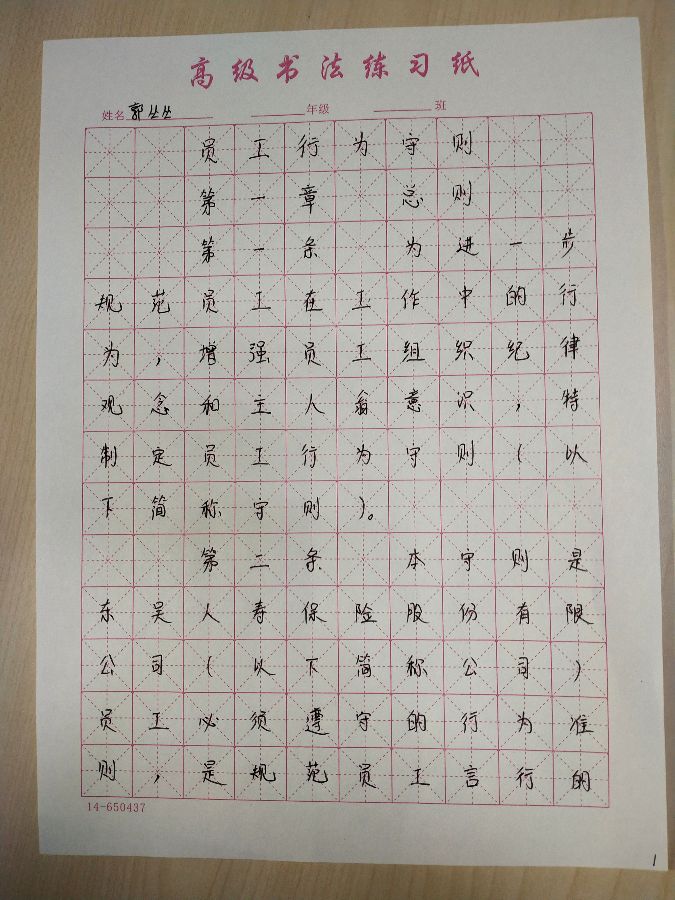 高级书法练习纸
姓名 郭丛丛 年级 班
员工行为守则
第一章 总则
第一条 为进一步
规范员工在工作中的行
为，增强员工组织纪律
观念和主人翁意识，特
制定员工行为守则（以
下简称守则）。
第二条 本守则是
东吴人寿保险股份有限
公司（以下简称公司）
员工必须遵守的行为准
则，是规范员工言行的
14-650437
1